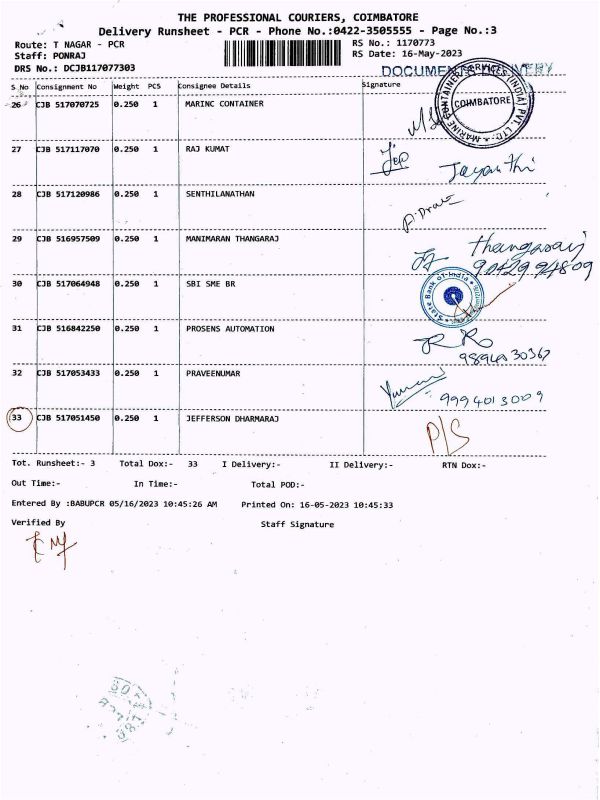 THE PROFESSIONAL COURIERS, COIMBATORE
Delivery Runsheet - PCR - Phone No.:0422-3505555 - Page No.:3
Route: T NAGAR - PCR
RS No.: 1170773
Staff: PONRAJ
RS Date: 16-May-2023
DRS No.: DCJB117077303
S No Consignment No Weight PCS Consignee Details Signature
26 CJB 517070725 0.250 1 MARINC CONTAINER
COIMBATORE
27 CJB 517117070 0.250 1 RAJ KUMAT
Jayanthi
28 CJB 517120986 0.250 1 SENTHILANATHAN
29 CJB 516957509 0.250 1 MANIMARAN THANGARAJ
Thangaraj
90429 94809
30 CJB 517064948 0.250 1 SBI SME BR
State Bank of India
31 CJB 516842250 0.250 1 PROSENS AUTOMATION
9894630367
32 CJB 517053433 0.250 1 PRAVEENUMAR
9994013009
33 CJB 517051450 0.250 1 JEFFERSON DHARMARAJ
P/S
Tot. Runsheet:- 3 Total Dox:- 33 I Delivery:- II Delivery:- RTN Dox:-
Out Time:- In Time:- Total POD:-
Entered By :BABUPCR 05/16/2023 10:45:26 AM Printed On: 16-05-2023 10:45:33
Verified By Staff Signature